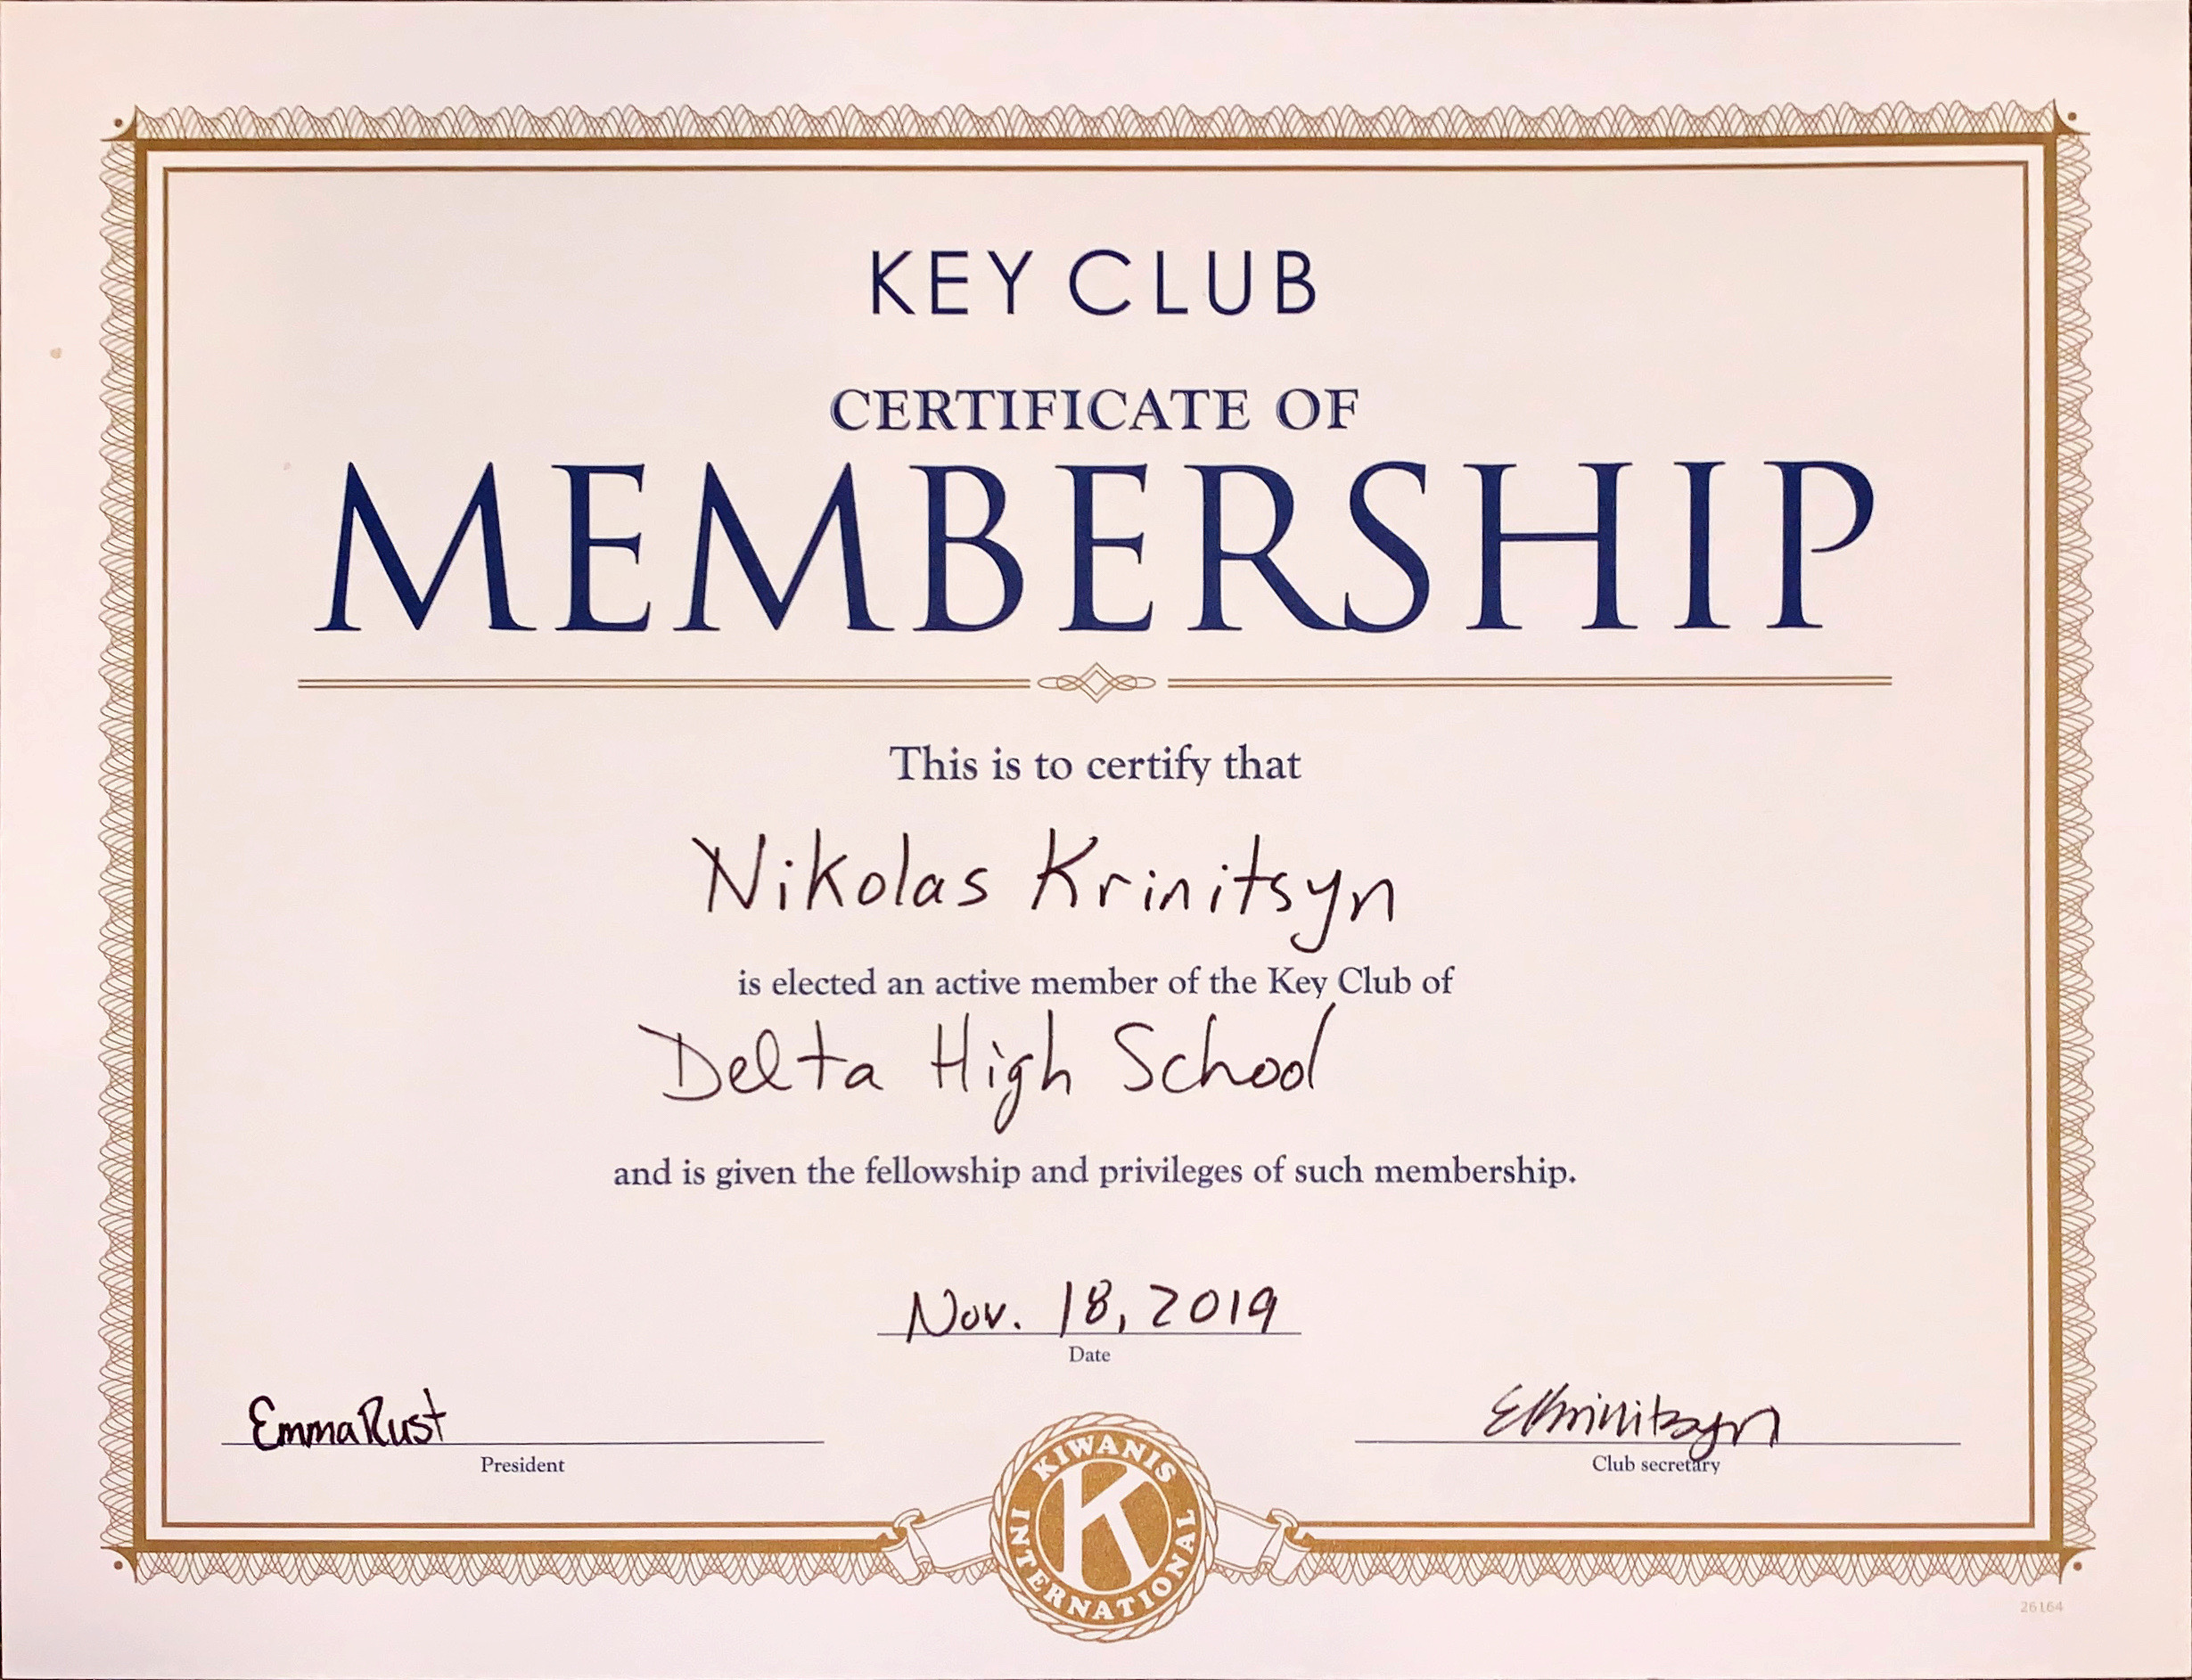 KEY CLUB
CERTIFICATE OF
MEMBERSHIP
This is to certify that
Nikolas Krinitsyn
is elected an active member of the Key Club of
Delta High School
and is given the fellowship and privileges of such membership.
Nov. 18, 2019
Date
Emma Rust
President
EKrinitsyn
Club secretary
KIWANIS
K
INTERNATIONAL
26164